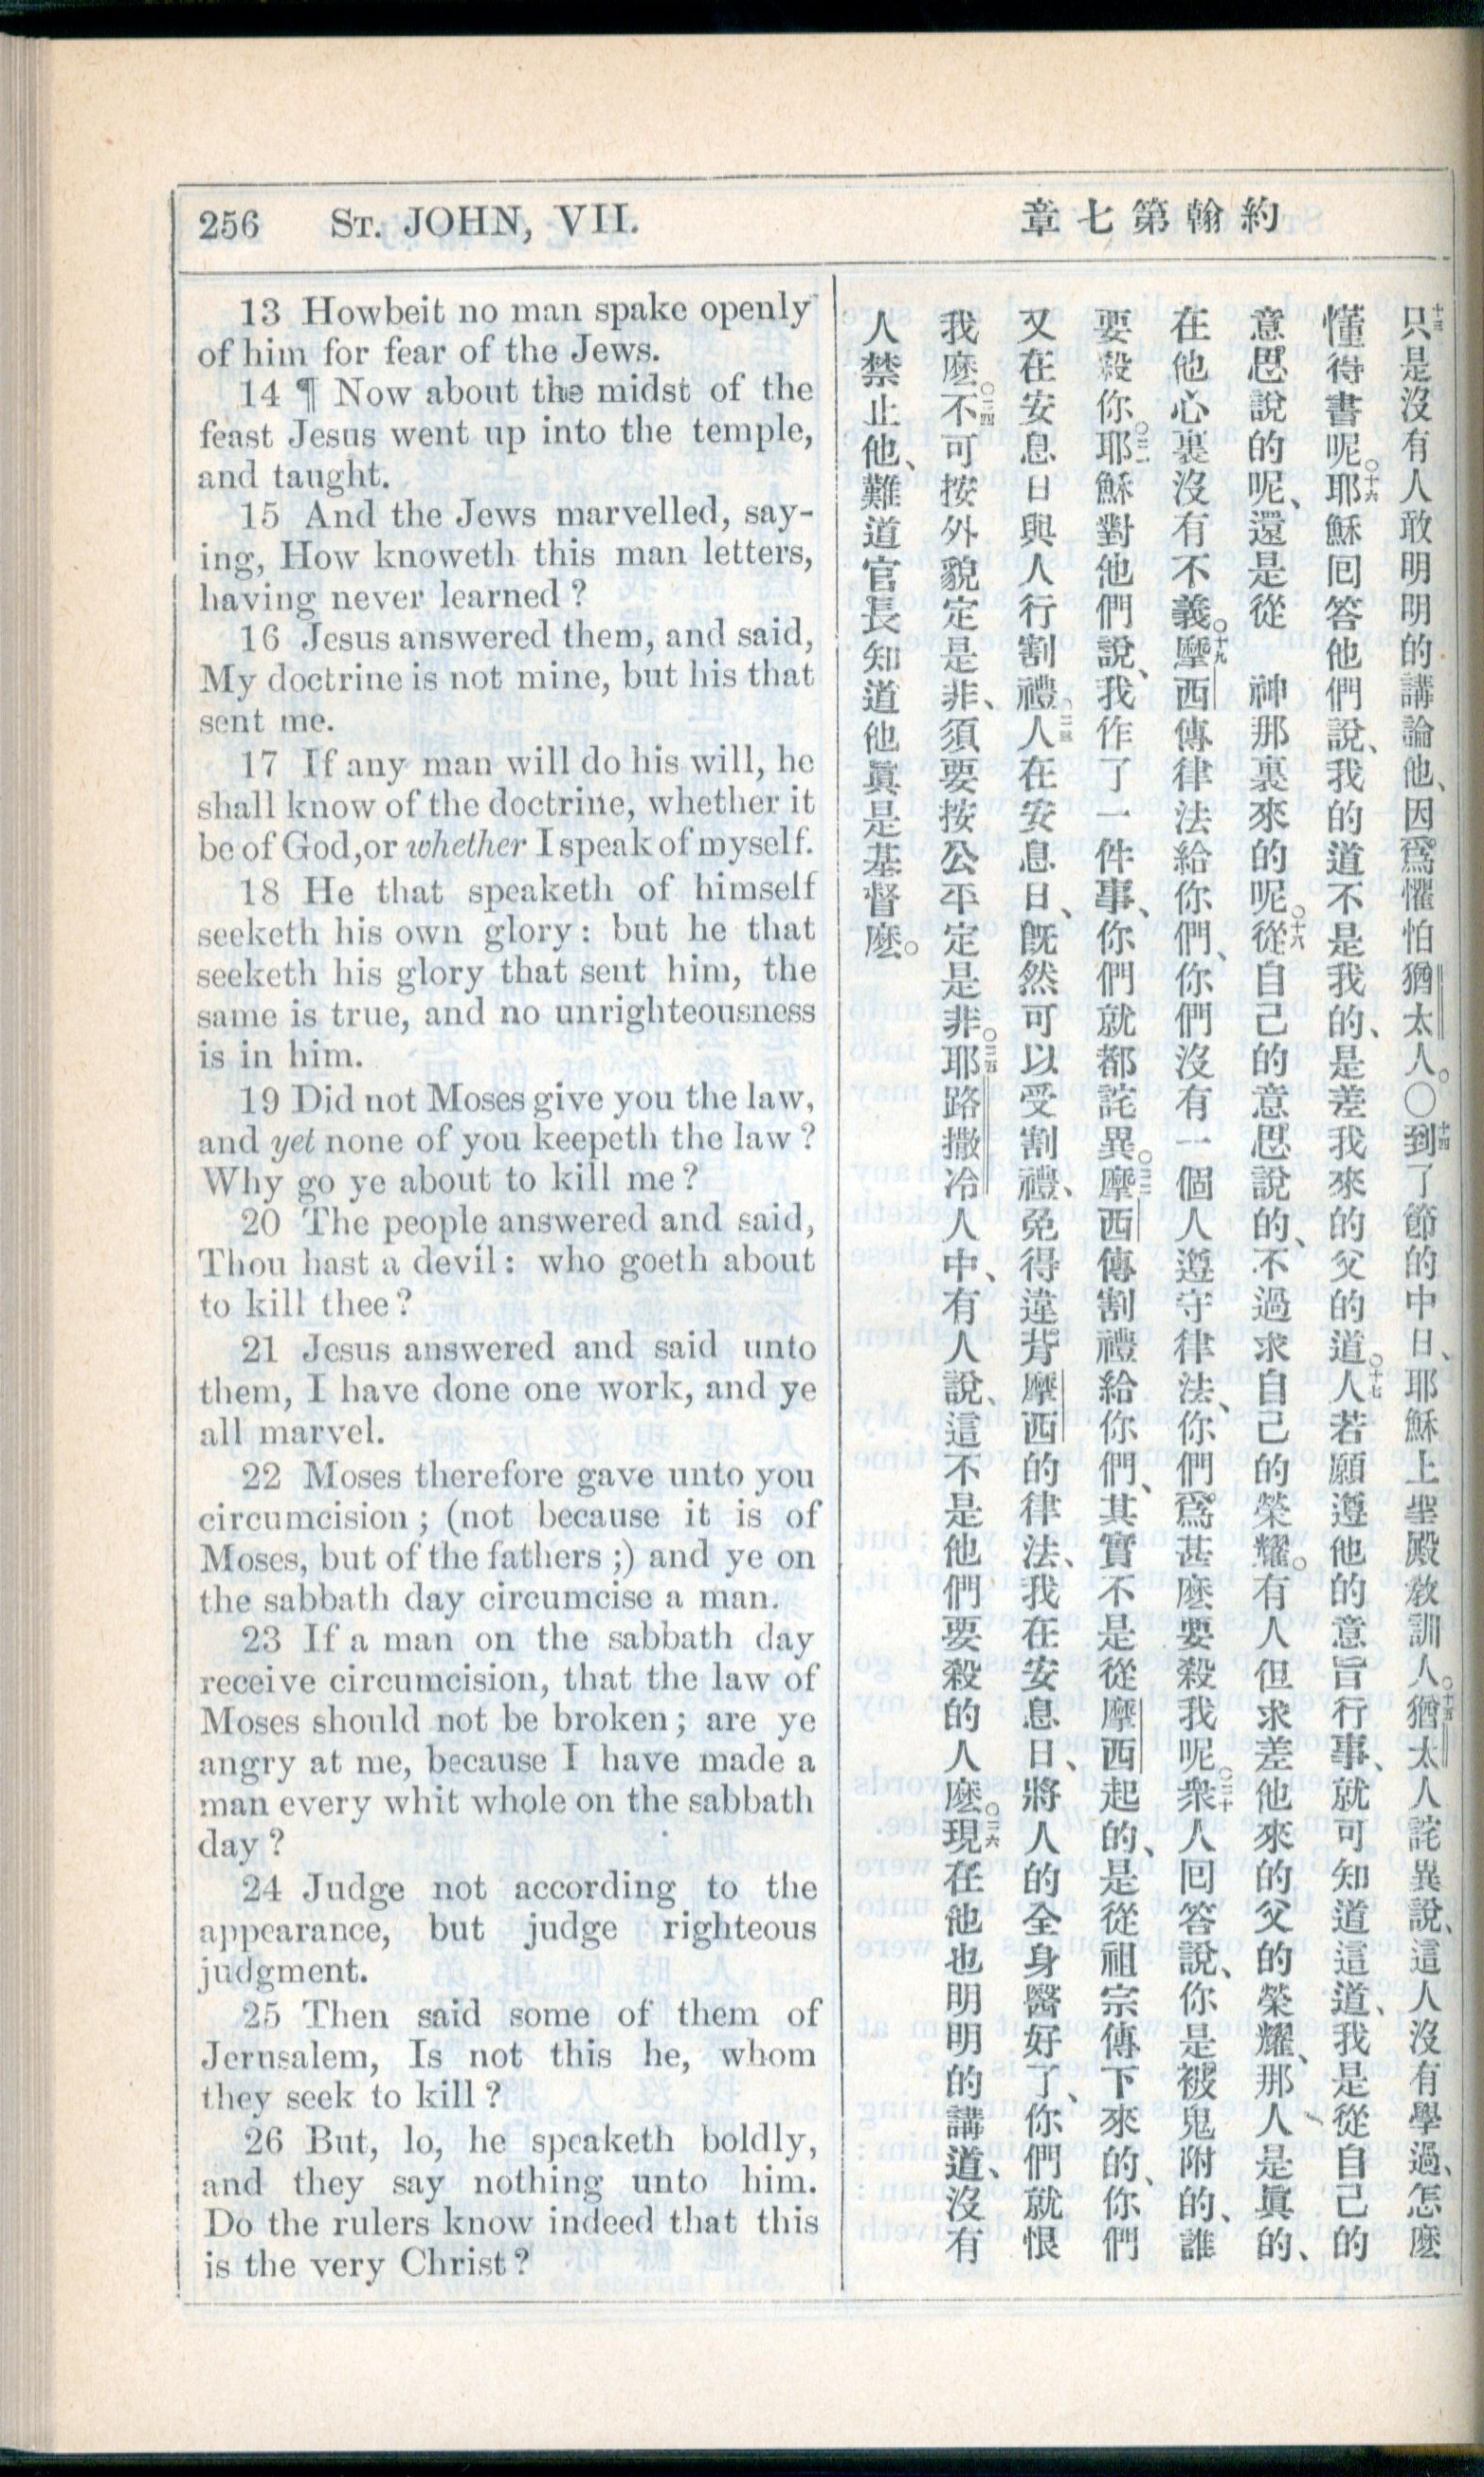 256 ST. JOHN, VII.
約翰第七章
13 Howbeit no man spake openly
of him for fear of the Jews.
14 ¶ Now about the midst of the
feast Jesus went up into the temple,
and taught.
15 And the Jews marvelled, say-
ing, How knoweth this man letters,
having never learned?
16 Jesus answered them, and said,
My doctrine is not mine, but his that
sent me.
17 If any man will do his will, he
shall know of the doctrine, whether it
be of God, or whether I speak of myself.
18 He that speaketh of himself
seeketh his own glory: but he that
seeketh his glory that sent him, the
same is true, and no unrighteousness
is in him.
19 Did not Moses give you the law,
and yet none of you keepeth the law?
Why go ye about to kill me?
20 The people answered and said,
Thou hast a devil: who goeth about
to kill thee?
21 Jesus answered and said unto
them, I have done one work, and ye
all marvel.
22 Moses therefore gave unto you
circumcision; (not because it is of
Moses, but of the fathers;) and ye on
the sabbath day circumcise a man.
23 If a man on the sabbath day
receive circumcision, that the law of
Moses should not be broken; are ye
angry at me, because I have made a
man every whit whole on the sabbath
day?
24 Judge not according to the
appearance, but judge righteous
judgment.
25 Then said some of them of
Jerusalem, Is not this he, whom
they seek to kill?
26 But, lo, he speaketh boldly,
and they say nothing unto him.
Do the rulers know indeed that this
is the very Christ?
十三只是沒有人敢明明的講論他、因爲懼怕猶太人。○十四到了節的中日、耶穌上聖殿敎訓人。十五猶太人詫異說、這人沒有學過、怎麽
懂得書呢。十六耶穌回答他們說、我的道不是我的、是差我來的父的道。十七人若願遵他的意旨行事、就可知道這道、我是從自己的
意思說的呢、還是從　神那裏來的呢。十八從自己的意思說的、不過求自己的榮耀。有人但求差他來的父的榮耀、那人是眞的、
在他心裏沒有不義。十九摩西傳律法給你們、你們沒有一個人遵守律法、你們爲甚麽要殺我呢。二十衆人回答說、你是被鬼附的、誰
要殺你。二一耶穌對他們說、我作了一件事、你們就都詫異。二二摩西傳割禮給你們、其實不是從摩西起的、是從祖宗傳下來的、你們
又在安息日與人行割禮。二三人在安息日、旣然可以受割禮、免得違背摩西的律法、我在安息日、將人的全身醫好了、你們就恨
我麽。二四不可按外貌定是非、須要按公平定是非。二五耶路撒冷人中、有人說、這不是他們要殺的人麽。二六現在他也明明的講道、沒有
人禁止他、難道官長知道他眞是基督麽。